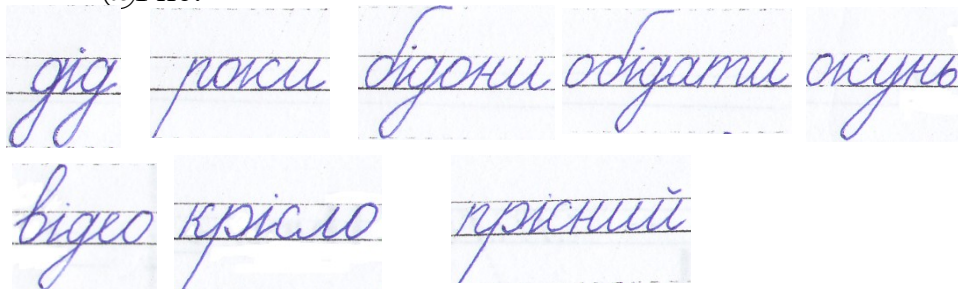 дід роки бідони обідати окунь
відео крісло прісний